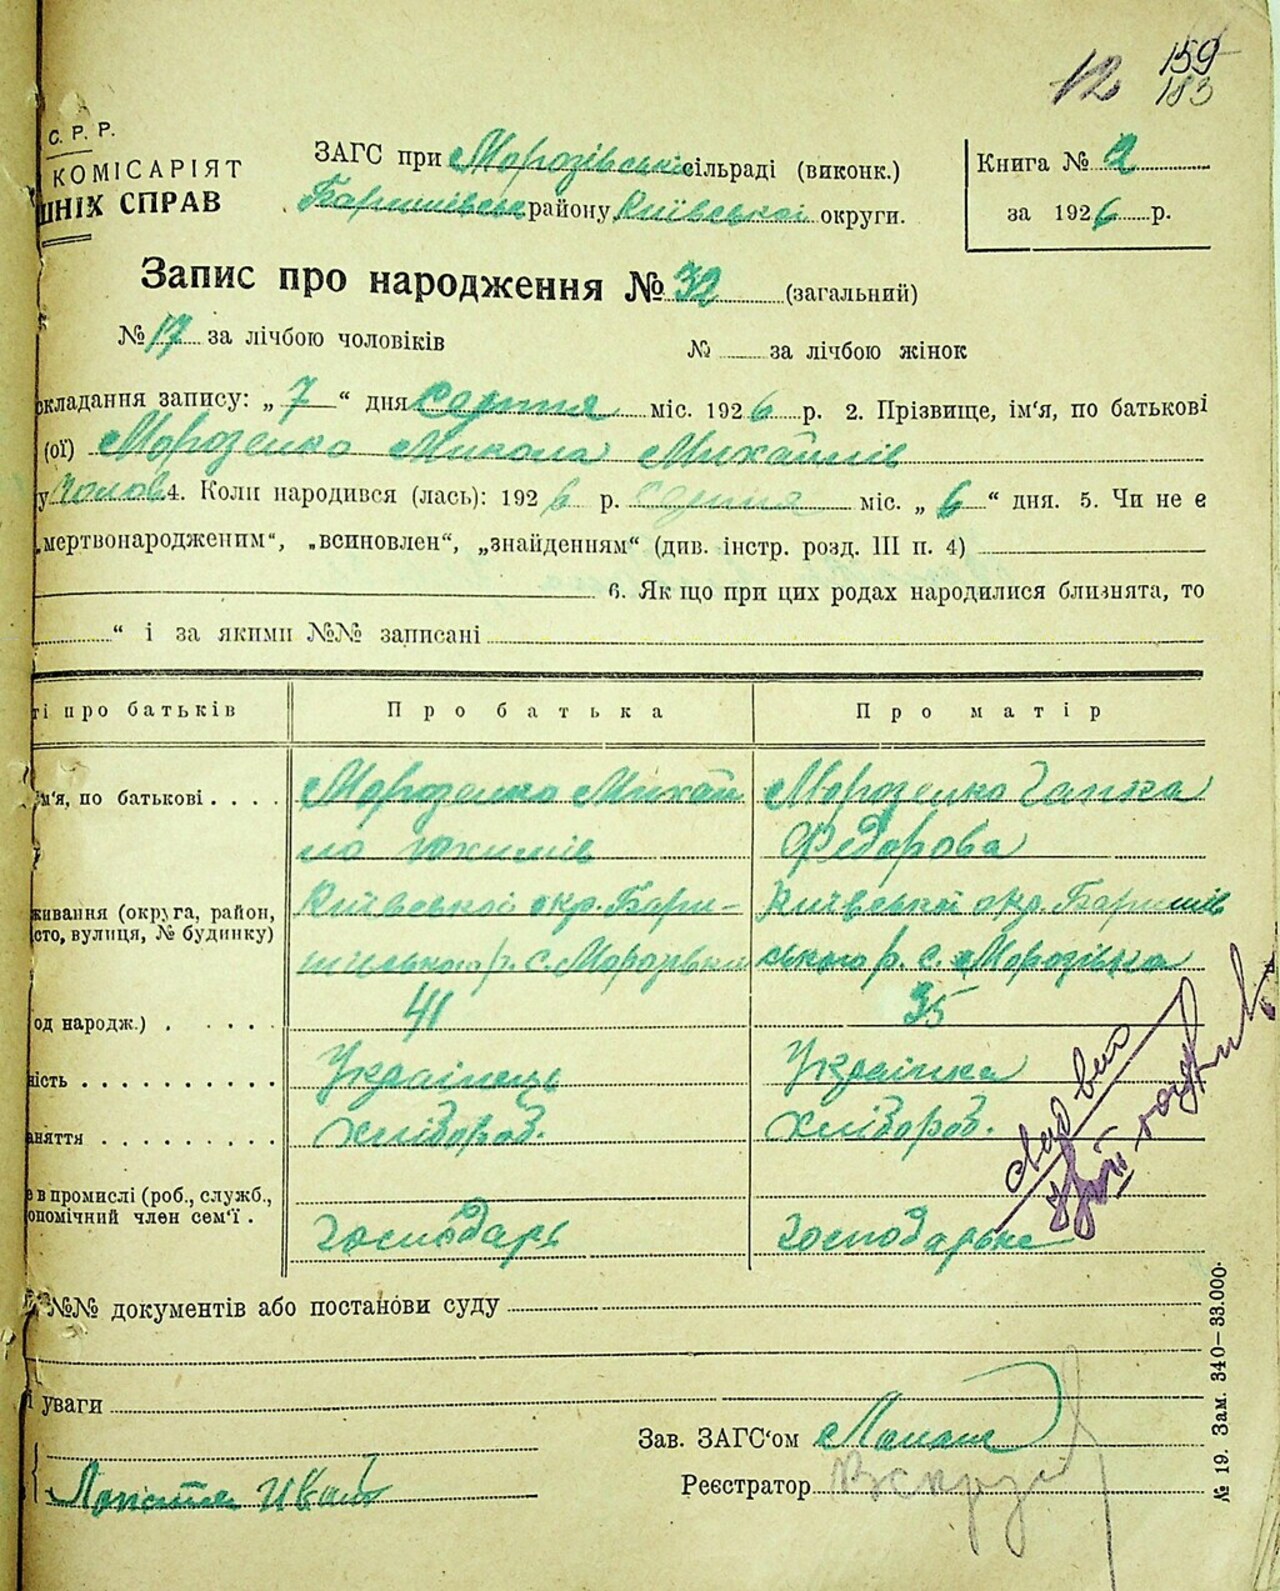 12 159
183
С. Р. Р.
КОМІСАРІЯТ
ШНІХ СПРАВ
ЗАГС при Морозівській сільраді (виконк.)
Баришівськ району Київської округи.
Книга № 2
за 1926 р.
Запис про народження № 32 (загальний)
№ 17 за лічбою чоловіків № за лічбою жінок
складання запису: „ 7 “ дня Серпня міс. 1926 р. 2. Прізвище, ім'я, по батькові
(ої) Морозенко Микола Михайлів
у Чолов 4. Коли народився (лась): 1926 р. серпня міс. „ 6 “ дня. 5. Чи не є
„мертвонародженим“, „всиновлен“, „знайденням“ (див. інстр. розд. III п. 4)
6. Як що при цих родах народилися близнята, то
“ і за якими №№ записані
ті про батьків Про батька Про матір
ім'я, по батькові . . . . Морозенко Михай Морозенко Ганна
ло Юхимів Федорова
живання (округа, район, Київської окр. Бари- Київської окр. Баришів
сто, вулиця, № будинку) шівського р. с. Морозівки ського р. с. Морозівка
од народж.) . . . . . 41 35
ність . . . . . . . . . . Українець Українка
аняття . . . . . . . . . Хлібороб. Хлібороб.
е в промислі (роб., служб.,
опомічний член сем'ї . Господарь Господарька
№№ документів або постанови суду
і уваги
Зав. ЗАГС'ом
Лопатя Иван
Реєстратор
№ 19. Зам. 340—33.000.